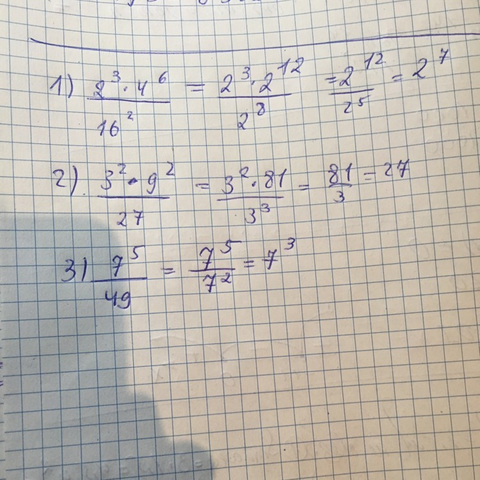 1) 2³·4⁶/16² = 2³·2¹²/2⁸ = 2¹²/2⁵ = 2⁷
2) 3²·9²/27 = 3²·81/3³ = 81/3 = 27
3) 7⁵/49 = 7⁵/7² = 7³